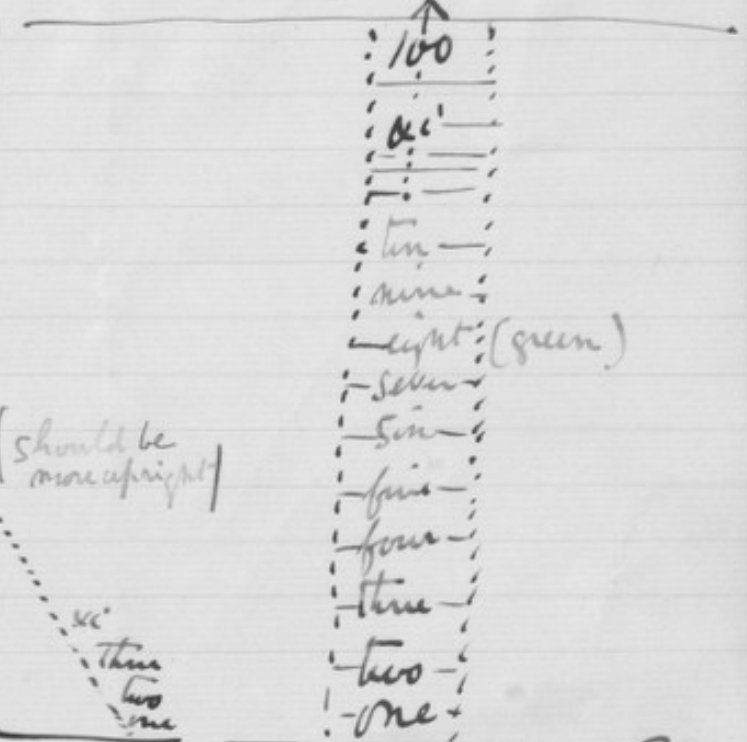 100
&c
ten
nine
eight (green)
seven
six
five
four
three
two
one
[should be
more upright]
&c
three
two
one